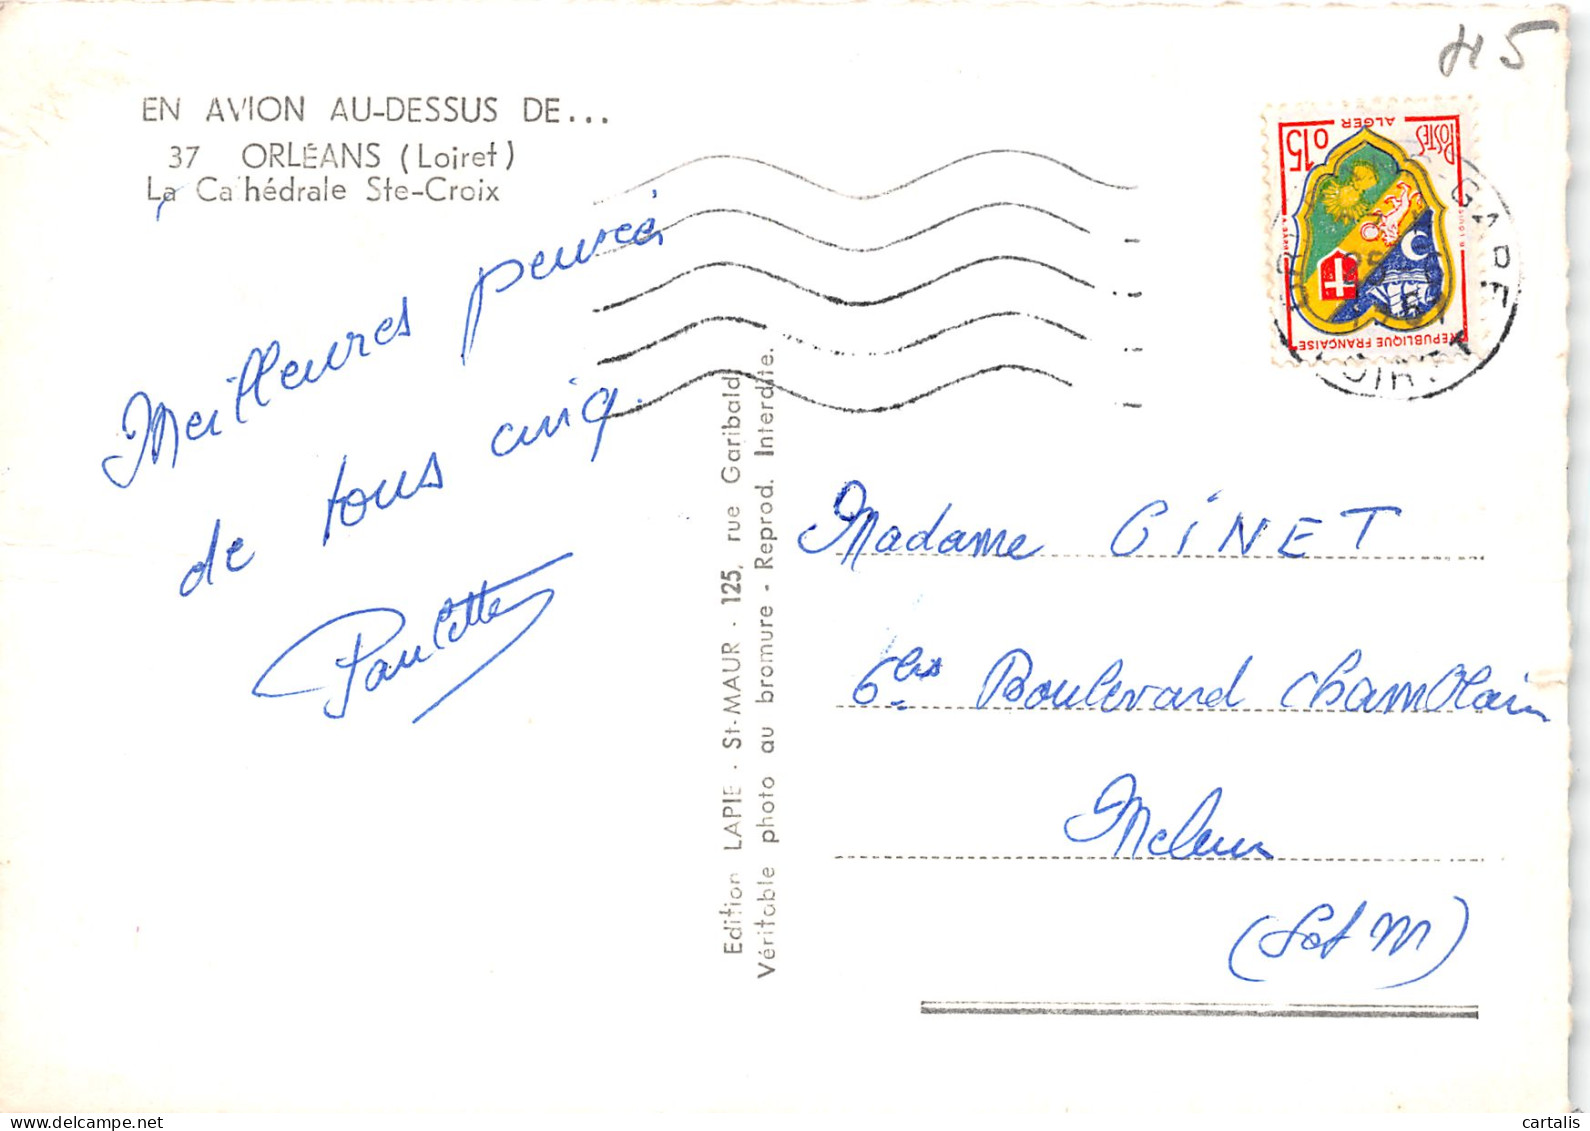 45
EN AVION AU-DESSUS DE...
37 ORLÉANS (Loiret)
La Cathédrale Ste-Croix
Meilleures pensées
de tous cinq.
Paulette
Edition LAPIE - St-MAUR - 125, rue Garibaldi
Véritable photo au bromure - Reprod. Interdite.
POSTES
ALGER
0,15
REPUBLIQUE FRANÇAISE
GARE
LOIRET
Madame GINET
6bis Boulevard Chamblain
Melun
(S et M)
cartalis